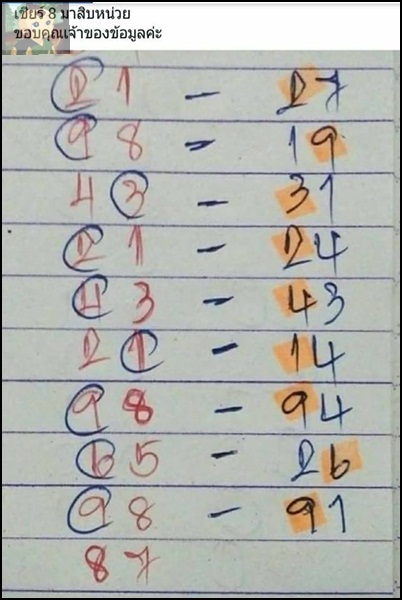 เชียร์ 8 มาสิบหน่วย
ขอบคุณเจ้าของข้อมูลค่ะ
21 - 27
98 - 19
43 - 31
21 - 24
43 - 43
21 - 14
98 - 94
65 - 26
98 - 91
87